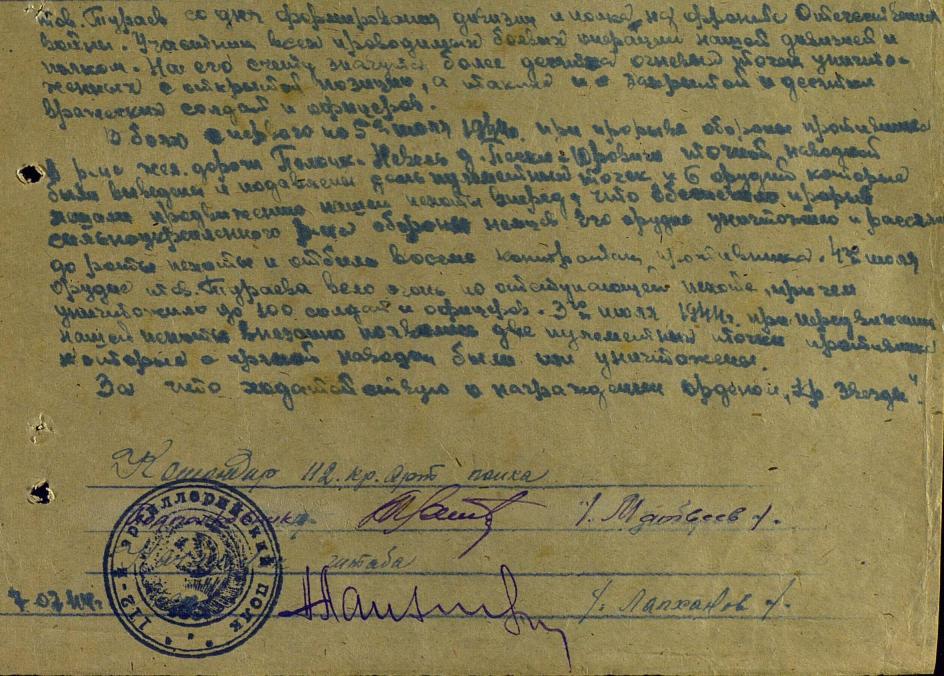 тов. Тураев со дня формирования дивизии и полка на фронте Отечественной
войны. Участник всех проводимых боевых операций нашей дивизией и
полком. На его счету значутся более десятка огневых точек уничто-
женных с открытой позиции, а также и с закрытой и десятки
вражеских солдат и офицеров.
В боях с первого по 5ое июля 1944г. при прорыве обороны противника
в р-не жел. дороги Полоцк-Невель д. Пески Юровичи точной наводкой
были выведены и подавлены пулеметных точек и 6 орудий которые
мешали продвижению нашей пехоты вперед, что обеспечило прорыв
сильноукрепленного р-на обороны немцев. Его орудие уничтожило и рассеяло
до роты пехоты и отбило восемь контратак противника. 4го июля
орудие тов. Тураева вело огонь по отступающей пехоте, причем
уничтожило до 100 солдат и офицеров. 3го июля 1944г. при передвижении
нашей пехоты внезапно две пулеметных точки противника
которые с прямой наводки были им уничтожены.
За что ходатайствую о награждении орденом „Кр. Звезда".
Командир 112. кр. арт полка
Подполковник /. Матвеев /.
Начальник штаба
7.07.44г. /. Лапханов /.
112-й артиллерийский полк